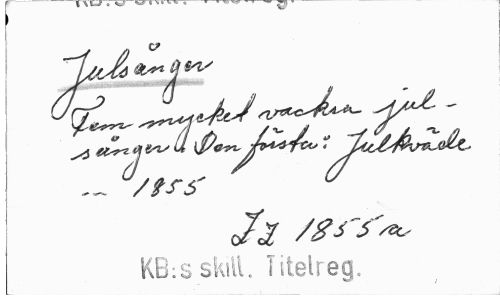 KB:s skill. Titelreg.
Julsånger
Fem mycket vackra jul-
sånger. Den första: Julkväde
-- 1855
1855
KB:s skill. Titelreg.